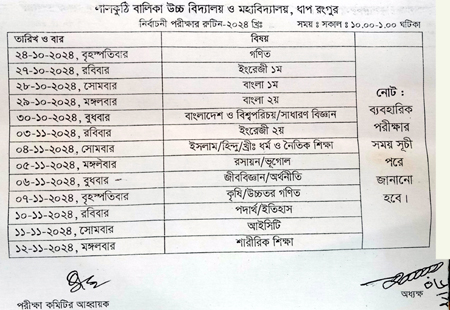 লালকুঠি বালিকা উচ্চ বিদ্যালয় ও মহাবিদ্যালয়, ধাপ রংপুর
নির্বাচনী পরীক্ষার রুটিন-২০২৪ খ্রিঃ সময় : সকাল : ১০.০০-১.০০ ঘটিকা
তারিখ ও বার বিষয়
২৪-১০-২০২৪, বৃহস্পতিবার গণিত
২৭-১০-২০২৪, রবিবার ইংরেজী ১ম
২৮-১০-২০২৪, সোমবার বাংলা ১ম
২৯-১০-২০২৪, মঙ্গলবার বাংলা ২য়
৩০-১০-২০২৪, বুধবার বাংলাদেশ ও বিশ্বপরিচয়/সাধারণ বিজ্ঞান
০৩-১১-২০২৪, রবিবার ইংরেজী ২য়
০৪-১১-২০২৪, সোমবার ইসলাম/হিন্দু/খ্রীঃ ধর্ম ও নৈতিক শিক্ষা
০৫-১১-২০২৪, মঙ্গলবার রসায়ন/ভূগোল
০৬-১১-২০২৪, বুধবার জীববিজ্ঞান/অর্থনীতি
০৭-১১-২০২৪, বৃহস্পতিবার কৃষি/উচ্চতর গণিত
১০-১১-২০২৪, রবিবার পদার্থ/ইতিহাস
১১-১১-২০২৪, সোমবার আইসিটি
১২-১১-২০২৪, মঙ্গলবার শারীরিক শিক্ষা
নোট :
ব্যবহারিক
পরীক্ষার
সময় সূচী
পরে
জানানো
হবে।
পরীক্ষা কমিটির আহ্বায়ক
অধ্যক্ষ